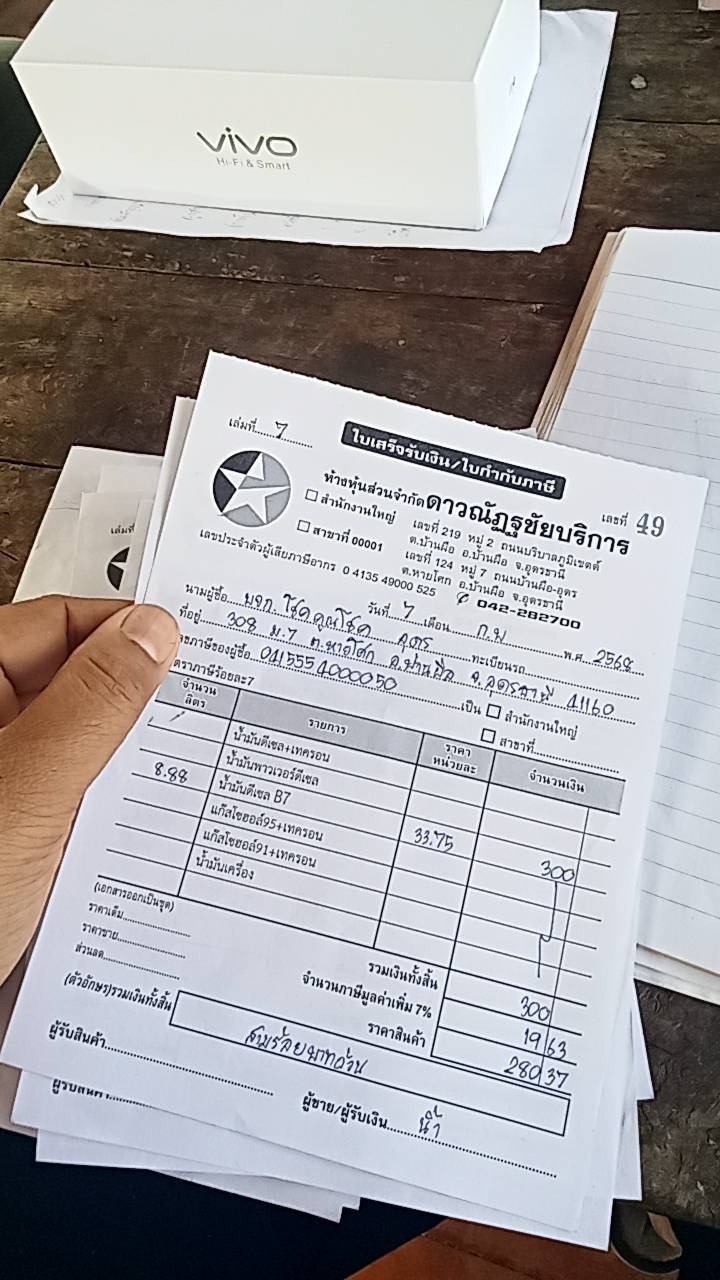 vivo
Hi-Fi & Smart
เล่มที่ 7
ใบเสร็จรับเงิน/ใบกำกับภาษี
เลขที่ 49
ห้างหุ้นส่วนจำกัดดาวณัฏฐชัยบริการ
สำนักงานใหญ่ เลขที่ 219 หมู่ 2 ถนนบริบาลภูมิเขตต์
ต.บ้านผือ อ.บ้านผือ จ.อุดรธานี
สาขาที่ 00001 เลขที่ 124 หมู่ 7 ถนนบ้านผือ-อุดร
ต.หายโศก อ.บ้านผือ จ.อุดรธานี
เลขประจำตัวผู้เสียภาษีอากร 0 4135 49000 525 042-282700
วันที่ 7 เดือน ก.พ พ.ศ. 2568
นามผู้ซื้อ หจก. โชคคูณโชค อุดร ทะเบียนรถ
ที่อยู่ 308 ม.7 ต.หายโศก อ.บ้านผือ จ.อุดรธานี 41160
ขภาษีของผู้ซื้อ 0415554000050 เป็น สำนักงานใหญ่
ตราภาษีร้อยละ7 สาขาที่
จำนวนลิตร รายการ ราคาหน่วยละ จำนวนเงิน
น้ำมันดีเซล+เทครอน
น้ำมันพาวเวอร์ดีเซล
8.88 น้ำมันดีเซล B7 33.75 300
แก๊สโซฮอล์95+เทครอน
แก๊สโซฮอล์91+เทครอน
น้ำมันเครื่อง
(เอกสารออกเป็นชุด)
ราคาเต็ม
ราคาขาย
ส่วนลด
รวมเงินทั้งสิ้น 300
จำนวนภาษีมูลค่าเพิ่ม 7% 19 63
ราคาสินค้า 280 37
(ตัวอักษร)รวมเงินทั้งสิ้น สามร้อยบาทถ้วน
ผู้รับสินค้า
ผู้ขาย/ผู้รับเงิน
ผู้รับสินค้า
เล่มที่